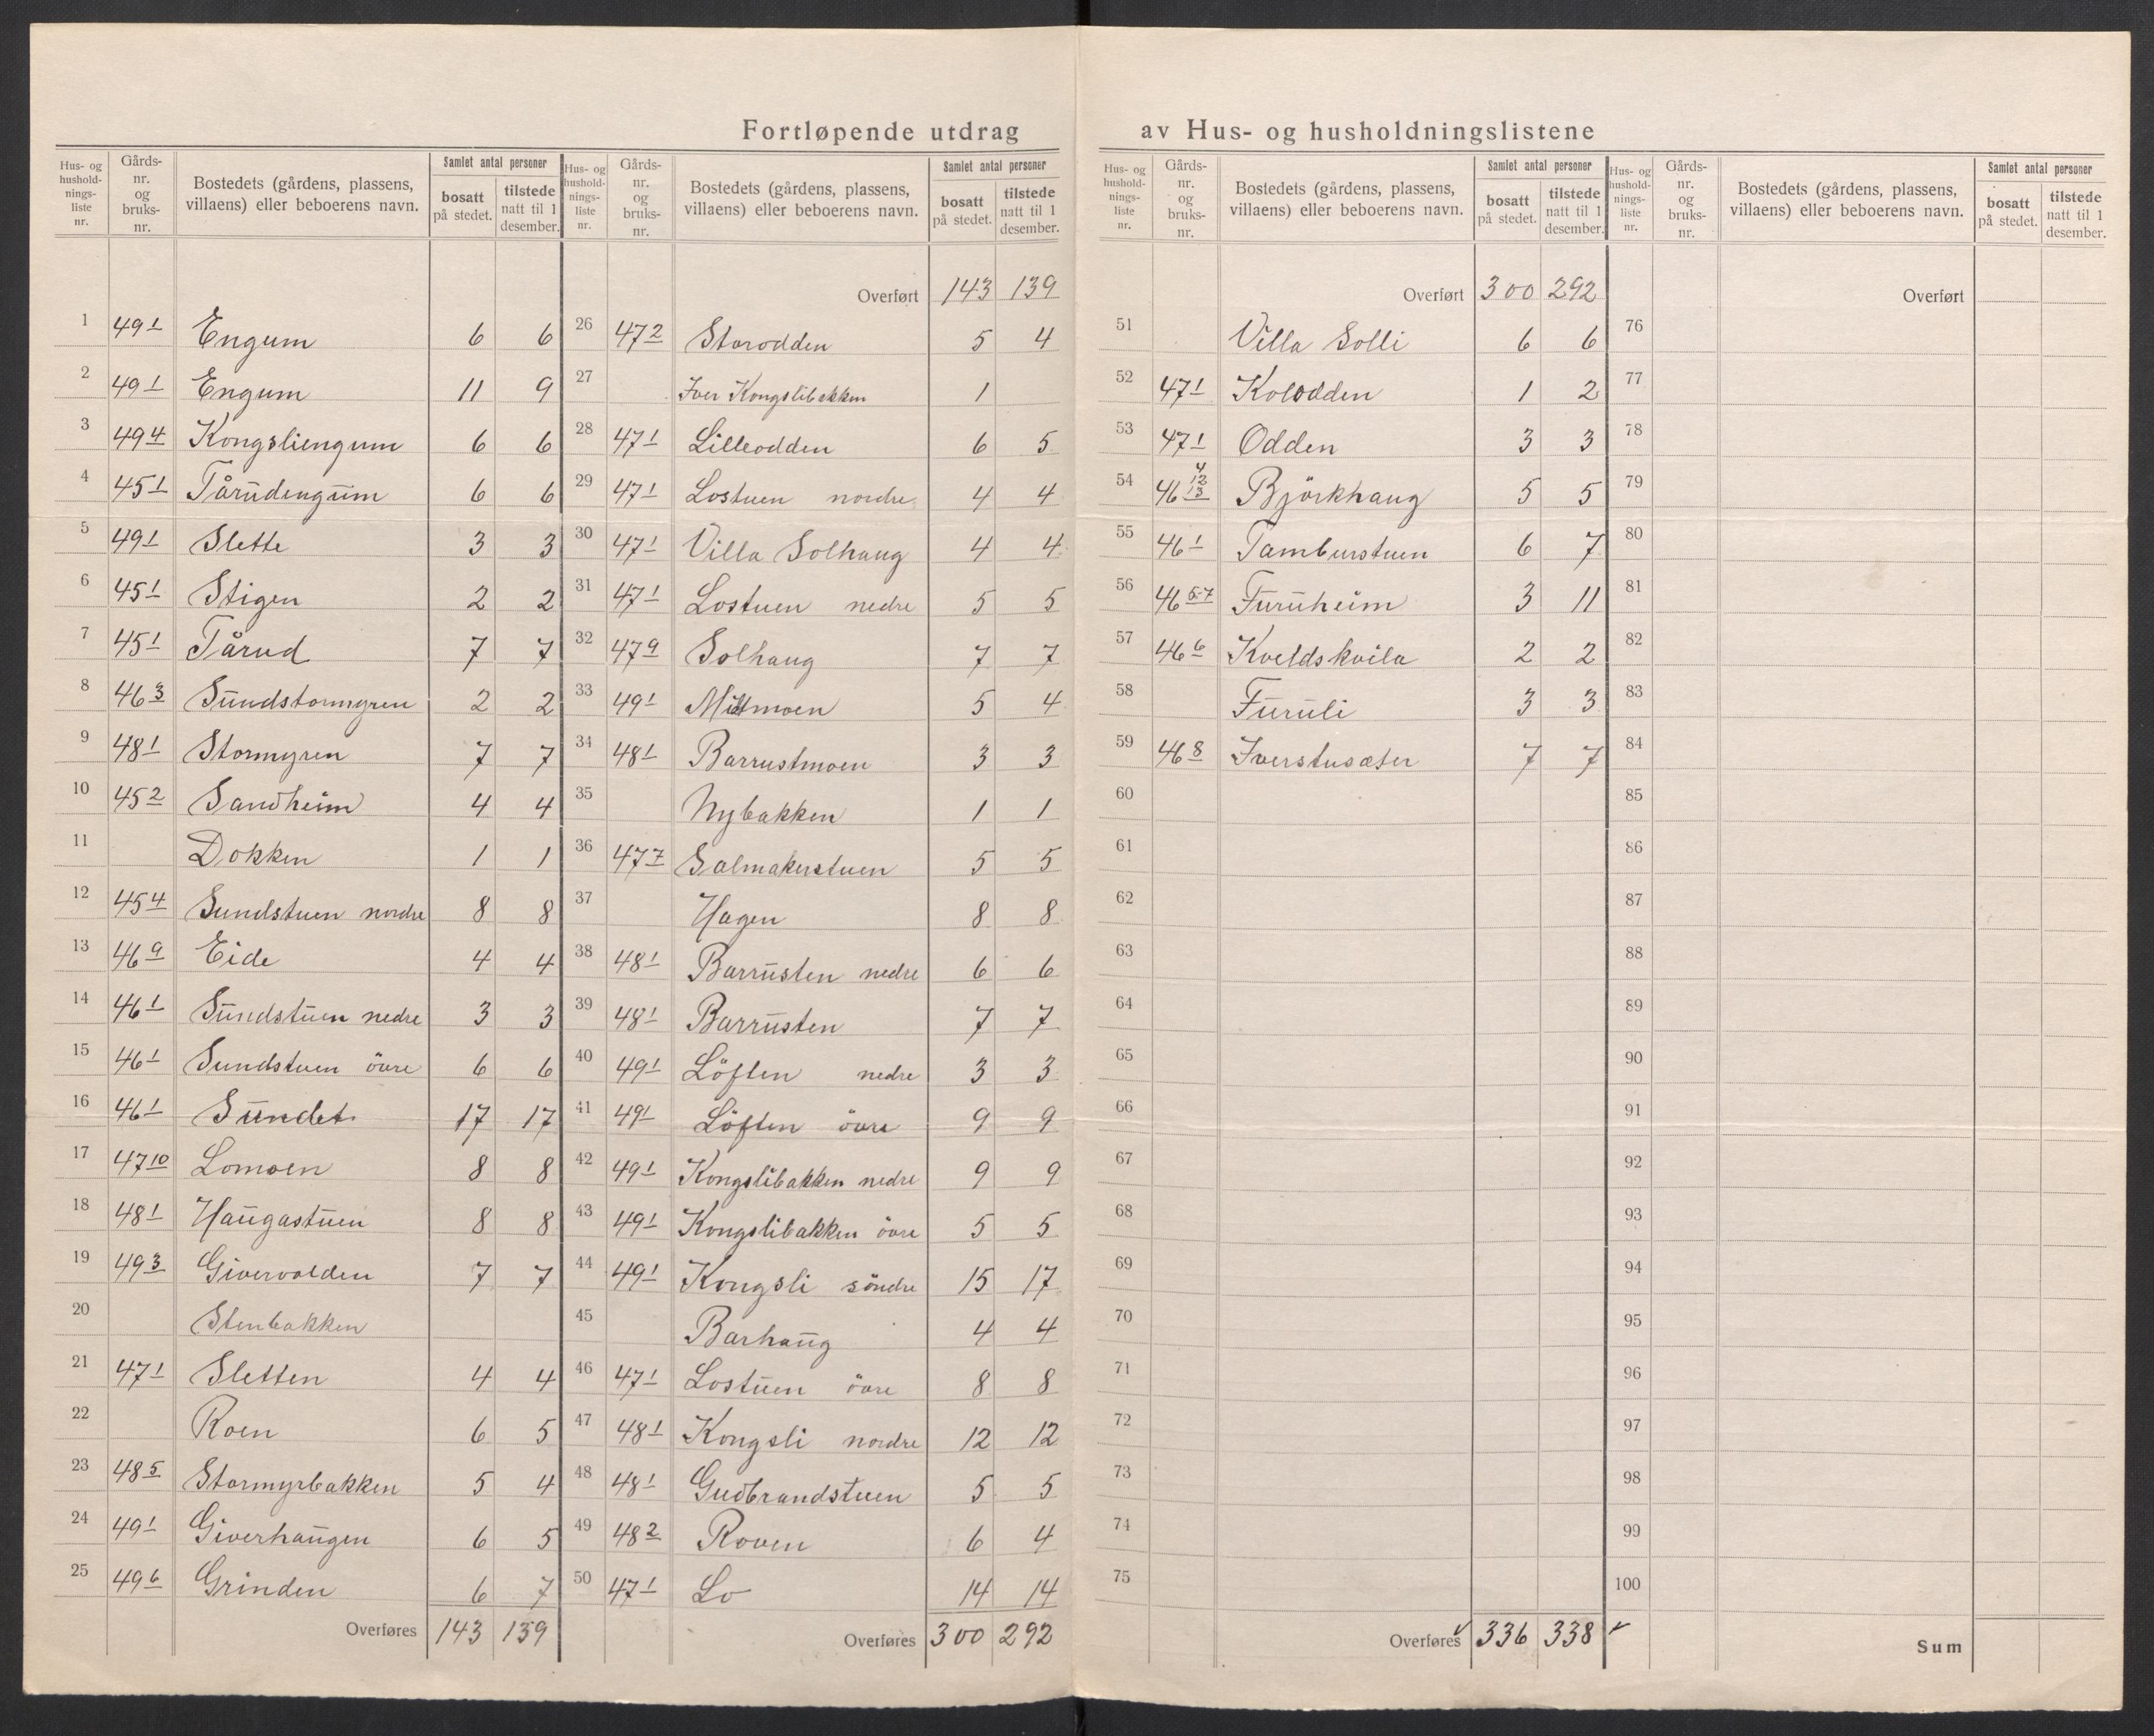 Fortløpende utdrag av Hus- og husholdningslistene
Hus- og hushold-nings-liste nr. Gårds-nr. og bruks-nr. Bostedets (gårdens, plassens, villaens) eller beboerens navn. Samlet antal personer bosatt på stedet. tilstede natt til 1 desember.
1 49 1 Engum 6 6
2 49 1 Engum 11 9
3 49 4 Kongsliengum 6 6
4 45 1 Tårudengum 6 6
5 49 1 Slette 3 3
6 45 1 Stigen 2 2
7 45 1 Tårud 7 7
8 46 3 Sundstormyren 2 2
9 48 1 Stormyren 7 7
10 45 2 Sandheim 4 4
11 Dokken 1 1
12 45 4 Sundstuen nordre 8 8
13 46 9 Eide 4 4
14 46 1 Sundstuen nedre 3 3
15 46 1 Sundstuen övre 6 6
16 46 1 Sundet 17 17
17 47 10 Lomoen 8 8
18 48 1 Haugastuen 8 8
19 49 3 Givervolden 7 7
20 Stenbakken
21 47 1 Sletten 4 4
22 Roen 6 5
23 48 5 Stormyrbakken 5 4
24 49 1 Giverhaugen 6 5
25 49 6 Grinden 6 7
Overføres 143 139
Hus- og hushold-nings-liste nr. Gårds-nr. og bruks-nr. Bostedets (gårdens, plassens, villaens) eller beboerens navn. Samlet antal personer bosatt på stedet. tilstede natt til 1 desember.
Overført 143 139
26 47 2 Storodden 5 4
27 Iver Kongslibakken 1
28 47 1 Lilleodden 6 5
29 47 1 Lostuen nordre 4 4
30 47 1 Villa Solhaug 4 4
31 47 1 Lostuen nedre 5 5
32 47 9 Solhaug 7 7
33 49 1 Mittmoen 5 4
34 48 1 Barrustmoen 3 3
35 Nybakken 1 1
36 47 7 Salmakerstuen 5 5
37 Hagen 8 8
38 48 1 Barrusten nedre 6 6
39 48 1 Barrusten 7 7
40 49 1 Löften nedre 3 3
41 49 1 Löften övre 9 9
42 49 1 Kongslibakken nedre 9 9
43 49 1 Kongslibakken övre 5 5
44 49 1 Kongsli söndre 15 17
45 Barhaug 4 4
46 47 1 Lostuen övre 8 8
47 48 1 Kongsli nordre 12 12
48 48 1 Gudbrandstuen 5 5
49 48 2 Roven 6 4
50 47 1 Lo 14 14
Overføres 300 292
Hus- og hushold-nings-liste nr. Gårds-nr. og bruks-nr. Bostedets (gårdens, plassens, villaens) eller beboerens navn. Samlet antal personer bosatt på stedet. tilstede natt til 1 desember.
Overført 300 292
51 Villa Solli 6 6
52 47 1 Kolodden 1 2
53 47 1 Odden 3 3
54 46 4 12 13 Björkhaug 5 5
55 46 1 Tamburstuen 6 7
56 46 5-7 Furuheim 3 11
57 46 6 Kveldskvila 2 2
58 Furuli 3 3
59 46 8 Iverstusæter 7 7
60
61
62
63
64
65
66
67
68
69
70
71
72
73
74
75
Overføres 336 338
Hus- og hushold-nings-liste nr. Gårds-nr. og bruks-nr. Bostedets (gårdens, plassens, villaens) eller beboerens navn. Samlet antal personer bosatt på stedet. tilstede natt til 1 desember.
Overført
76
77
78
79
80
81
82
83
84
85
86
87
88
89
90
91
92
93
94
95
96
97
98
99
100
Sum